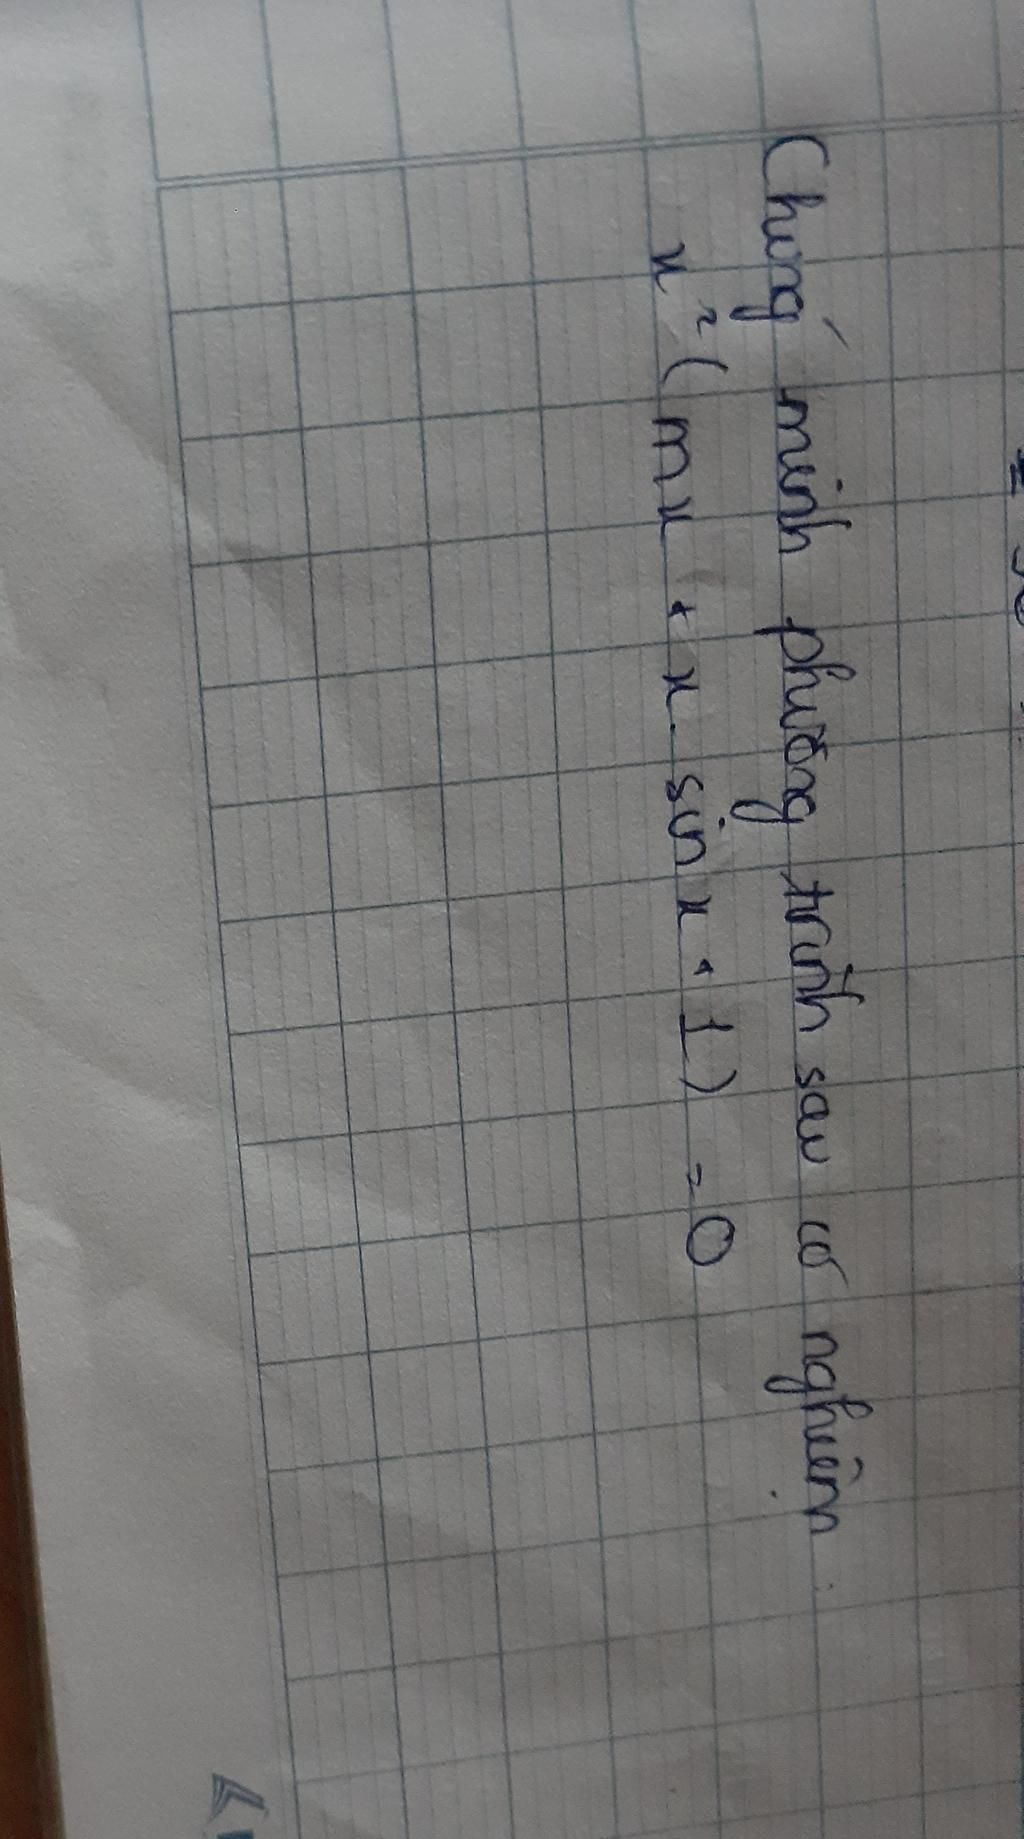 Chứng minh phương trình sau có nghiệm.
x² ( mx + x. sin x + 1 ) = 0